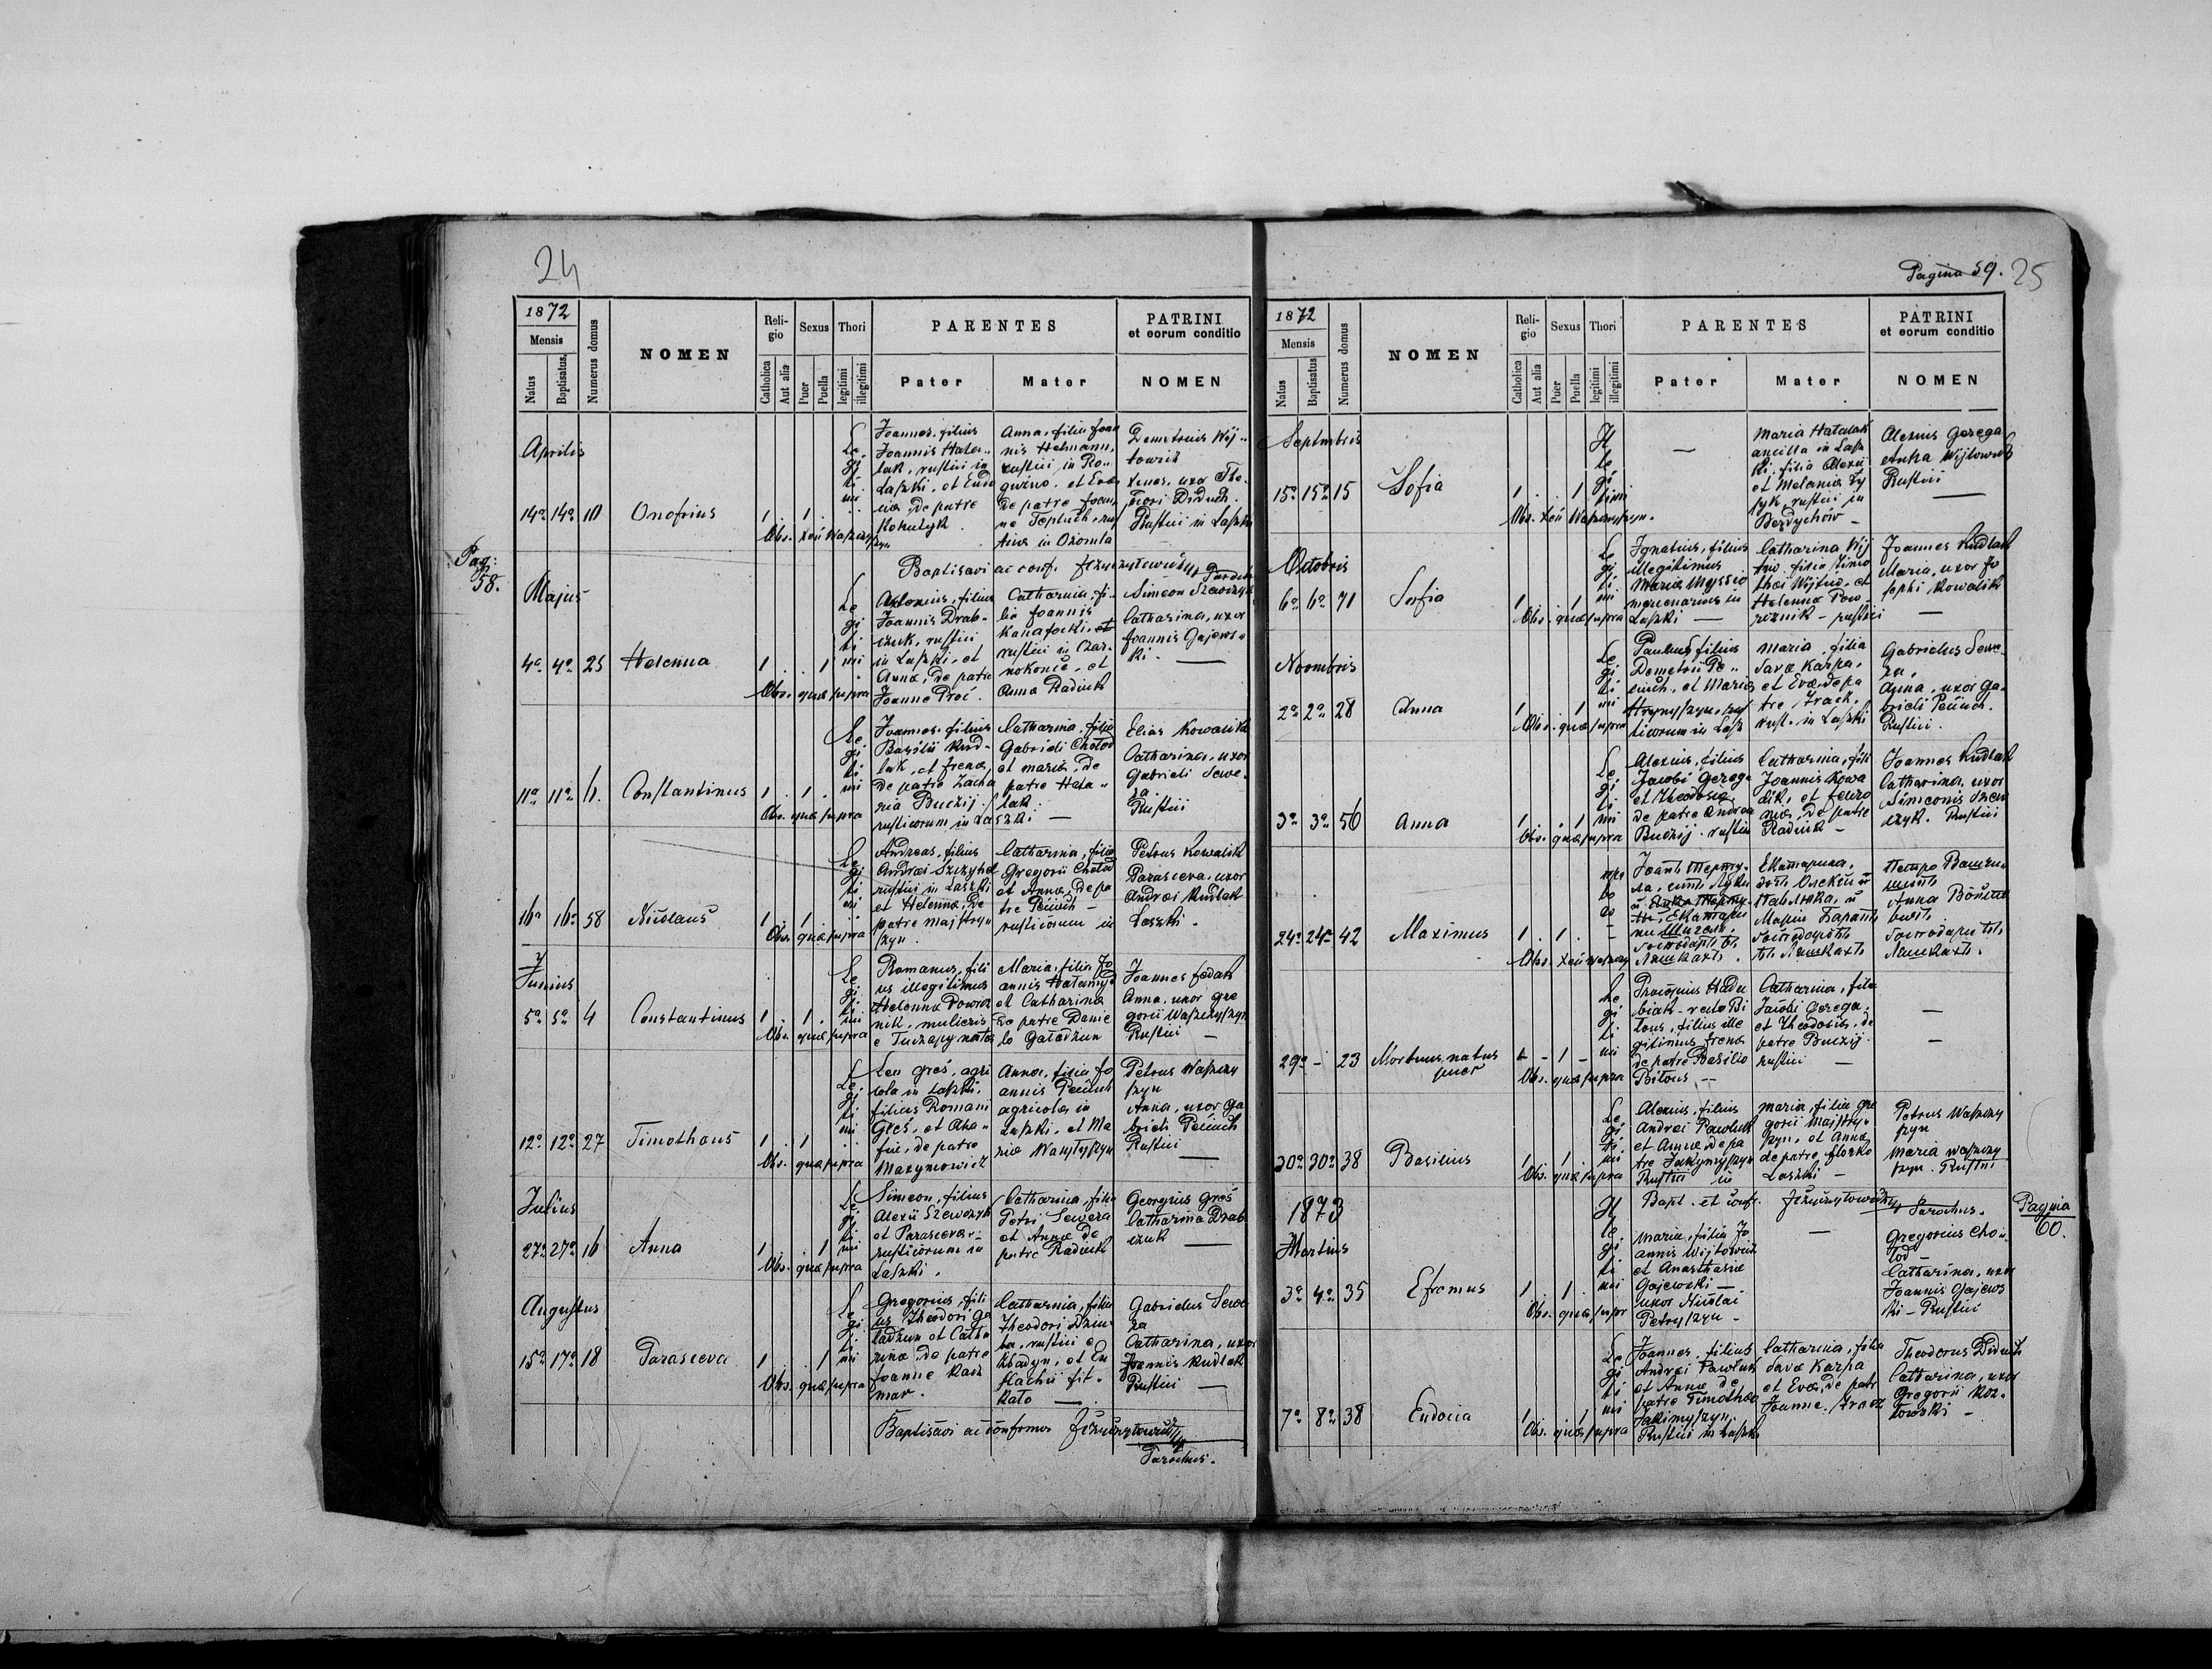 24
1872
Mensis
Natus
Baptisatus
Numerus domus
NOMEN
Religio
Catholica
Aut alia
Sexus
Puer
Puella
Thori
legitimi
illegitimi
PARENTES
Pater
Mater
PATRINI
et eorum conditio
NOMEN
Aprilis
14a 14a 10 Onofrius 1 . 1 .
Legitimi
Joannes, filius
Joannis Hata-
lak, rustici in
Laszki, et Eudo
cia, de patre
Anna, filia Joan
nis Helmann,
rustici in Ro-
guzno, et Eva
de patre Joan
ne
in Oxomla
Demetrius Wij-
towicz
Xenes, uxor The-
Diduch.
Rustici in Laszki
Pag:
58.
Baptisavi ac conf.
Majus
4a 4a 25 Helenna 1 . . 1
Legitimi
Obs. quae supra
Antonius, filius
Joannis Drab-
czuk, rustici
in Laszki, et
Anna, de patre
Joanne Proć.
Catharina, fi-
lia Joannis
Kanafocki, et
rustici in Czar-
nokonce, et
Anna Radiuk
Simeon Szewczyk
Catharina, uxor
Joannis Gajews-
ki.
11a 11a 4. Constantinus 1 . 1 .
Legitimi
Obs. quae supra
Joannes, filius
Basilii Kud-
lak, et Irena,
de patre Zacha
ria Buczij
rusticorum in Laszki
Catharina, filia
Gabrieli Chołod
et Maria, de
patre Hata-
lak.
Elias Kowalik
Catharina, uxor
Gabrieli Sewe-
ra.
Rustici
16a 16a 58 Nicolaus 1 . 1 .
Legitimi
Obs. quae supra
Andreas, filius
Andrei
rustici in Laszki
et Helenna, de
patre Majstry-
szyn.
Catharina, filia
Gregorii Chołod
et Anna, de pa
tre Peiuch
rusticorum in
Petrus Kowalik
Parasceva, uxor
Andrei Kudlak
Laszki.
Junius
5a 5a 4 Constantinus 1 . 1 .
Legitimi
Obs. quae supra
Romanus, fili
us illegitimus
Helenna Powroz
nik, mulieris
e
Maria, filia Jo
annis
et Catharina
de patre Danie
lo Gaładzun
Joannes Fedak
Anna, uxor Gre
gorii Waszczyszyn
Rustici
12a 12a 27 Timotheus 1 . 1
Legitimi
Obs. quae supra
Leu Greś, agri
cola in Laszki,
filius Romani
Greś, et Aha-
fii, de patre
Maxymowicz
Anna, filia Jo
annis Peiuch
agricola in
Laszki, et Ma
ria Wasylyszyn
Petrus Waszczy
szyn
Anna, uxor Ga
brieli Peiuch
Rustici
Julius
27a 27a 16 Anna 1 . . 1
Legitimi
Obs. quae supra
Simeon, filius
Alexii Szewczyk
et Parasceva
rusticorum in
Laszki.
Catharina, filia
Petri Sewera
et Anna de
patre Radiuk
Georgius Greś
Catharina Drab
czuk
Augustus
15a 17a 18 Parasceva 1 . . 1
Legitimi
Obs. quae supra
Gregorius, fili
us Theodori Ga
ladzun et Catha
rina, de patre
Joanne Kacz
mar.
Catharina, filia
Theodori Dziu-
ba, rustici e
et Eu
Gabrielus Sewe
ra
Catharina, uxor
Joannis Kudlak
Rustici
Baptisavi ac confirmavi
Parochus.
Pagina 59. 25
1872
Mensis
Natus
Baptisatus
Numerus domus
NOMEN
Religio
Catholica
Aut alia
Sexus
Puer
Puella
Thori
legitimi
illegitimi
PARENTES
Pater
Mater
PATRINI
et eorum conditio
NOMEN
Septmbris
15a 15a 15 Sofia 1 . . 1
Illegitimi
Maria Hatalak
ancilla in Lasz
ki, filia Alexii
et Melania
rustici in
Berdychów
Alexius Gerega
Anna Wijtowicz
Rustici
Octobris
6a 6a 71 Sofia 1 . . 1
Legitimi
Obs. quae supra
Ignatius, filius
illegitimus
Maria
mercenarius in
Laszki
Catharina Wij
tiw, filia Timo
thei Wijtiw, et
Helenna Pow-
roznik - rustici
Joannes Kudlak
Maria, uxor Jo
sephi Kowalik
Noembris
2a 2a 28 Anna 1 . . 1
Legitimi
Obs. quae supra
Paulus, filius
Demetrii Pe-
iuch, et Maria
Hrynyszyn, rus
ticorum in Lasz
Maria, filia
Sava Karpa,
et Eva, de pa
tre Irack,
rust. in Laszki
Gabrielus Sewe-
ra,
Anna, uxor Ga-
brieli Peiuch.
Rustici.
3a 3a 56 Anna 1 . . 1
Legitimi
Obs. quae supra
Alexius, filius
Jacobi Gerega
et Theodosia,
de patre Andrea
Buczij. rustici
Catharina, fili
Joannis Kowa
lik, et
de patre
Radiuk
Joannes Kudlak
Catharina, uxor
Simeonis Szew
czyk. Rustici
24a 24a 42 Maximus 1 . 1 .
Екатарина,
Петро
Анна
29a - 23 Mortuus natus
puer
Legitimi
Obs. quae supra
Procopius Hadu
biak - recte Bi
lous, filius ille
gitimus Irena
de patre Basilio
Biłous
Catharina, filia
Jacobi Gerega,
et Theodosia, de
patre Buczij.
rustici
30a 30a 38 Basilius 1 . 1 .
Legitimi
Obs. quae supra
Alexius, filius
Andrei Pawluk
et Anna, de pa
tre Jakymyszyn
Rustici in
Maria, filia Gre
gorii Majstry-
szyn, et Anna,
de patre
Laszki
Petrus Waszczy
szyn
Maria Waszczy
szyn. Rustici
Bapt. et conf.
Parochus.
Pagina
60.
1873
Martius
3a 4a 35 Efremus 1 . 1 .
Illegitimi
Obs. quae supr
Maria, filia Jo
annis Wijtowicz
et Anasthasia
Gajewski
uxor Nicolai
Petryszyn
Gregorius Cho-
łod
Catharina, uxor
Joannis Gajews
ki - Rustici
7a 8a 38 Eudocia 1 . . 1
Legitimi
Obs. quae supra
Joannes, filius
Andrei Pawluk
et Anna de
patre Timotheo
Jakimyszyn.
Rustici in Laszki
Catharina, filia
Sava Karpa
et Eva, de patr
Joanne Iracz
Theodorus Diduch
Catharina, uxor
Gregorii Koz-
łowski